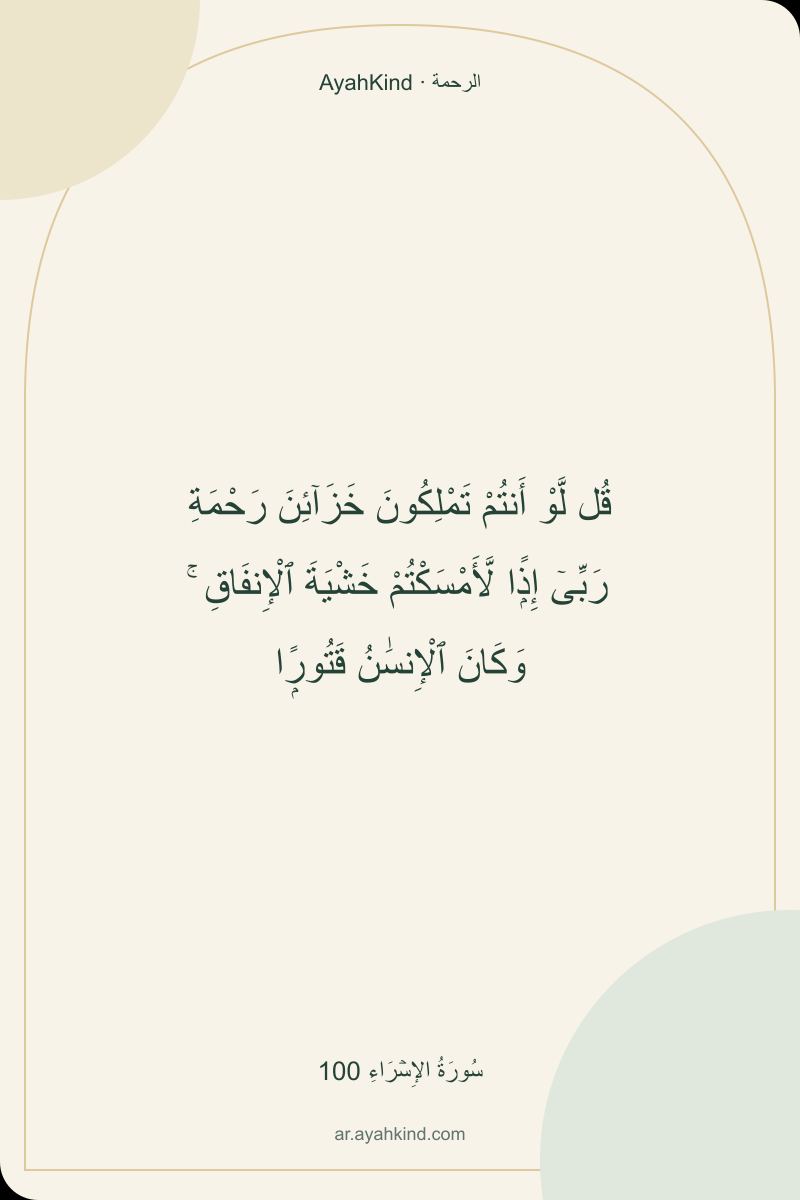 AyahKind · الرحمة
قُل لَّوْ أَنتُمْ تَمْلِكُونَ خَزَآئِنَ رَحْمَةِ
رَبِّىٓ إِذًۭا لَّأَمْسَكْتُمْ خَشْيَةَ ٱلْإِنفَاقِ ۚ
وَكَانَ ٱلْإِنسَٰنُ قَتُورًۭا
سُورَةُ الإِسۡرَاءِ 100
ar.ayahkind.com